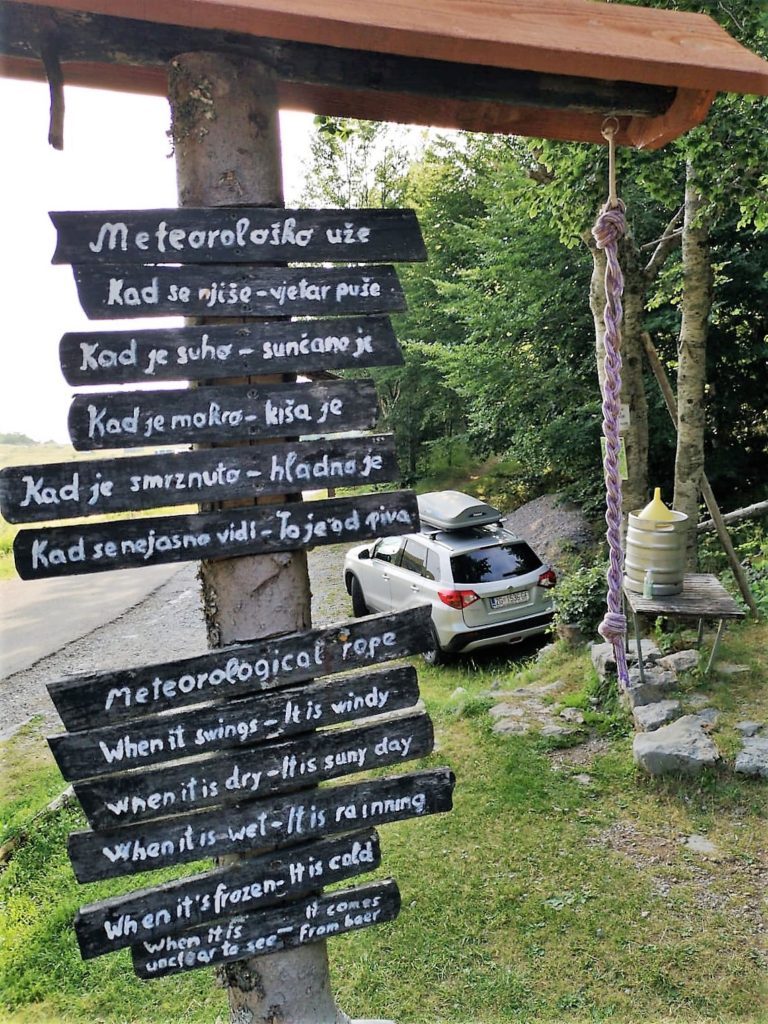 Meteorološko uže
Kad se njiše - vjetar puše
Kad je suho - sunčano je
Kad je mokro - kiša je
Kad je smrznuto - hladno je
Kad se nejasno vidi - To je od piva
Meteorological rope
When it swings - It is windy
when it is dry - It is suny day
When it is - wet - It is rainning
When it's frozen - It is cold
When it is unclear to see - It comes From beer